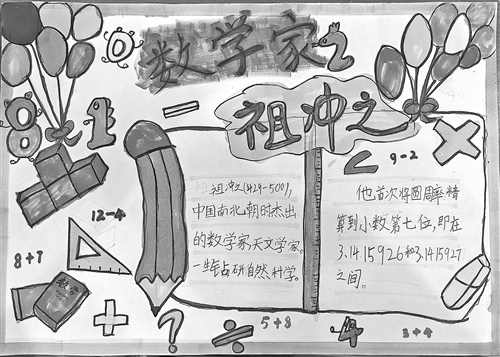 数学家
祖冲之
9-2
祖冲之(429-500),
中国南北朝时杰出
的数学家,天文学家。
一生钻研自然科学。
他首次将圆周率精
算到小数第七位,即在
3.1415926和3.1415927
之间。
12-4
8+7
数学
+
?
÷
5+8
4
3+4
0
2
8
1
×